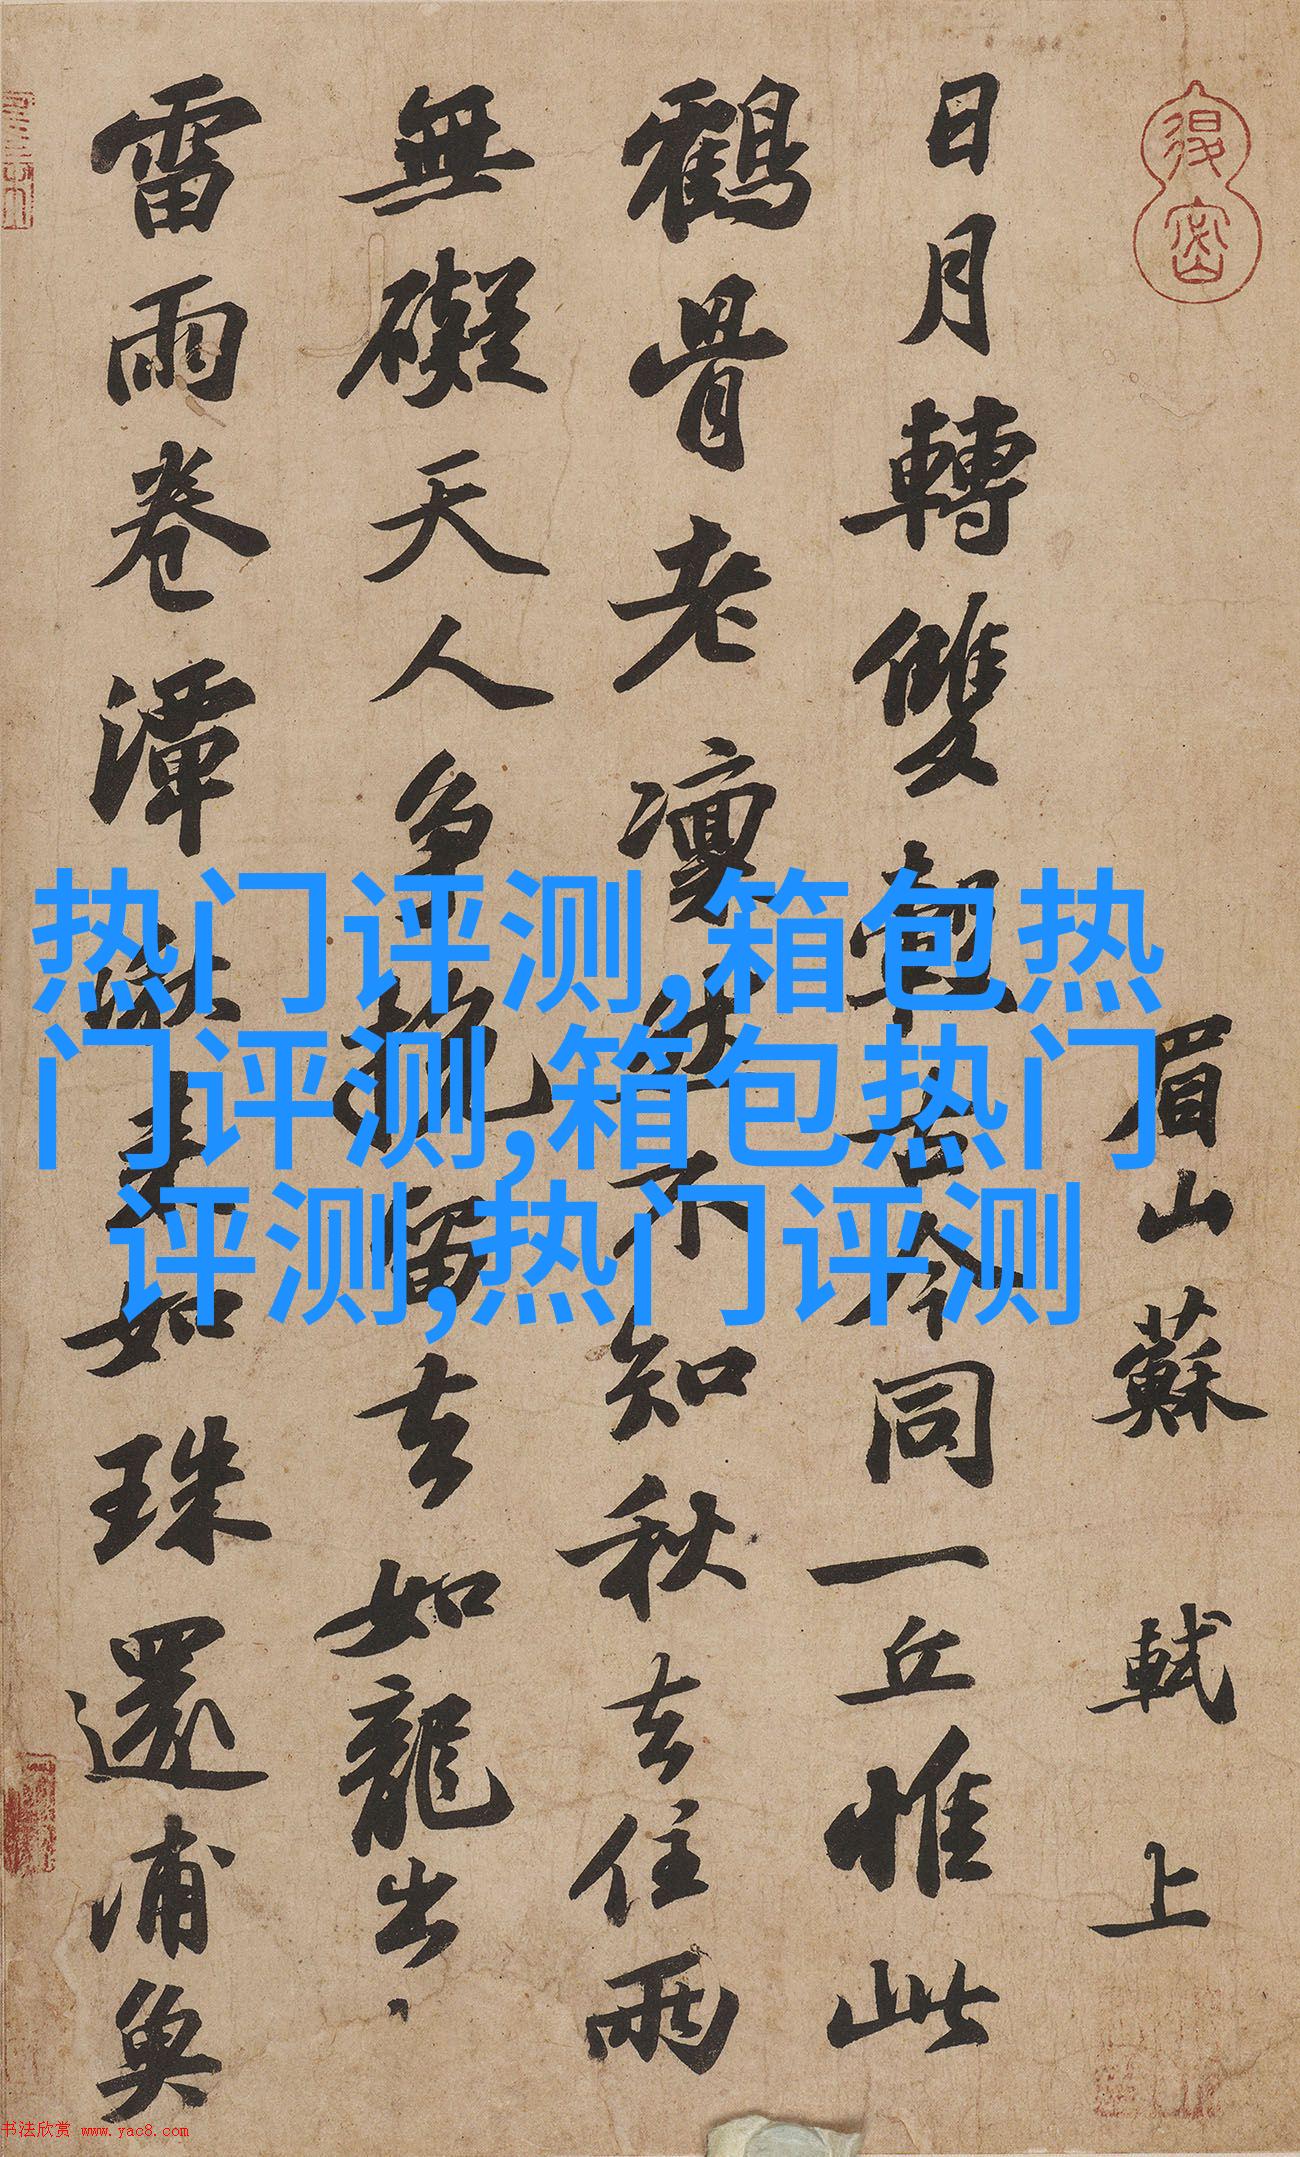 眉山蘇軾上
日月轉雙轂古今同一丘惟此
鶴骨老凜然不知秋去住兩
無礙天人争挽留去如龍出
雷雨卷潭湫来如珠還浦魚
热门评测,箱包热
门评测,箱包热门
评测,热门评测
书法欣赏 www.yac8.com